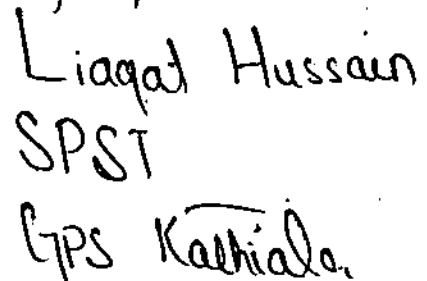 Liaqat Hussain
SPST
GPS Kathiala